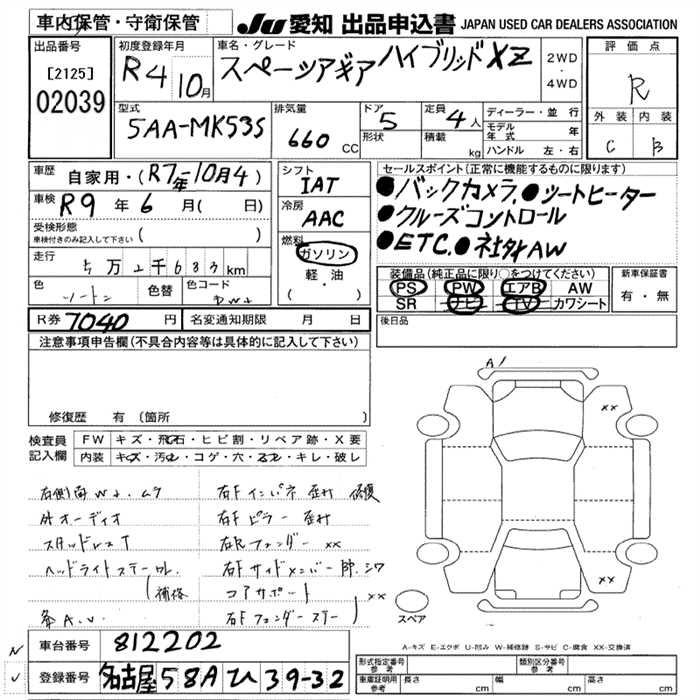 車内保管・守衛保管
JU 愛知 出品申込書 JAPAN USED CAR DEALERS ASSOCIATION
出品番号
[2125]
02039
初度登録年月
R4 10月
車名・グレード
スペーシアギア ハイブリッド XZ
2WD
・
4WD
評価点
R
外装 内装
C B
型式
5AA-MK53S
排気量
660 CC
ドア
5
形状
定員
4人
積載
kg
ディーラー・並行
モデル年式 年
ハンドル 左・右
車歴
自家用・(R7年10月4)
車検 R9年 6月( 日)
受検形態
車検付きのみ記入して下さい ( )
走行
5万2千683km
色
ツートン
色替
色コード
シフト
IAT
冷房
AAC
燃料
ガソリン
軽・油
( ・ )
セールスポイント(正常に機能するものに限ります)
●バックカメラ、●シートヒーター
●クルーズコントロール
●ETC.●社外AW
装備品(純正品に限り○をつけてください)
PS PW エアB AW
SR ナビ TV カワシート
新車保証書
有・無
後日品
R券 7040円
名変通知期限 月 日
注意事項申告欄(不具合内容等は具体的に記入して下さい)
修復歴 有(箇所 )
検査員
記入欄
FW キズ・飛石・ヒビ割・リペア跡・X要
内装 キズ・汚レ・コゲ・穴・スレ・キレ・破レ
右側面 ムラ
外オーディオ
スタッドレスT
ヘッドライトステー
(補修
右Fインパネ 歪み 修復
右Fピラー 歪み
右Rフェンダー XX
右Fサイドメンバー シワ
コアサポート
右Fフェンダーステー) XX
A1
XX
XX
スペア
A-キズ E-エクボ U-凹み W-補修跡 S-サビ C-腐食 XX-交換済
車台番号 812202
登録番号 名古屋 58A ひ 39-32
形式指定番号
参考
類別区分番号
参考
車庫証明用
参考
長さ cm 幅 cm 高さ cm